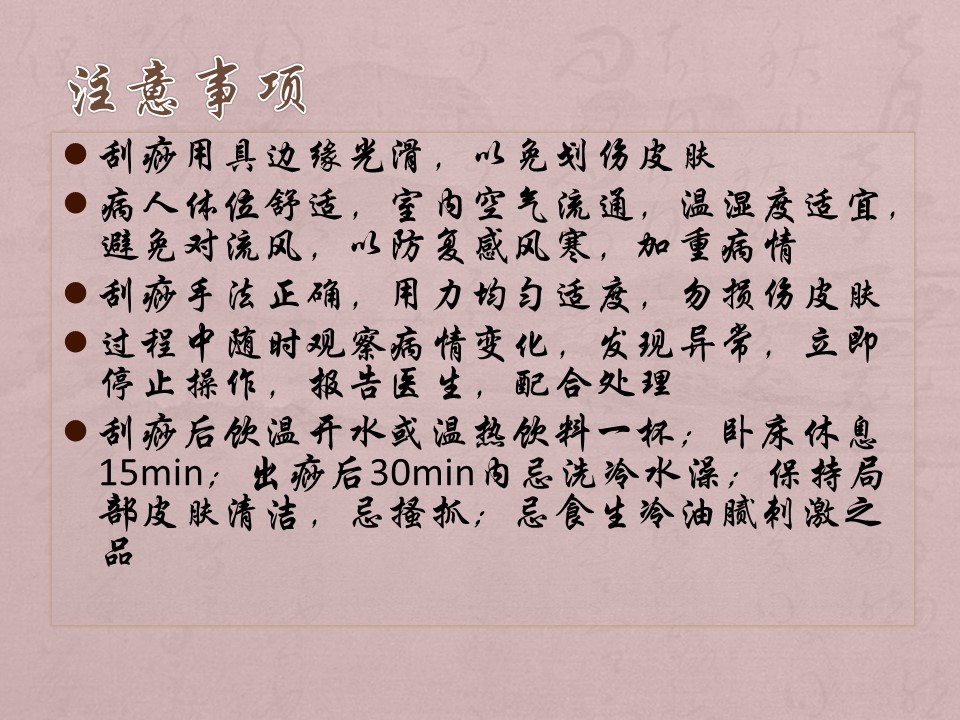 注意事项
刮痧用具边缘光滑，以免划伤皮肤
病人体位舒适，室内空气流通，温湿度适宜，
避免对流风，以防复感风寒，加重病情
刮痧手法正确，用力均匀适度，勿损伤皮肤
过程中随时观察病情变化，发现异常，立即
停止操作，报告医生，配合处理
刮痧后饮温开水或温热饮料一杯；卧床休息
15min；出痧后30min内忌洗冷水澡；保持局
部皮肤清洁，忌搔抓；忌食生冷油腻刺激之
品